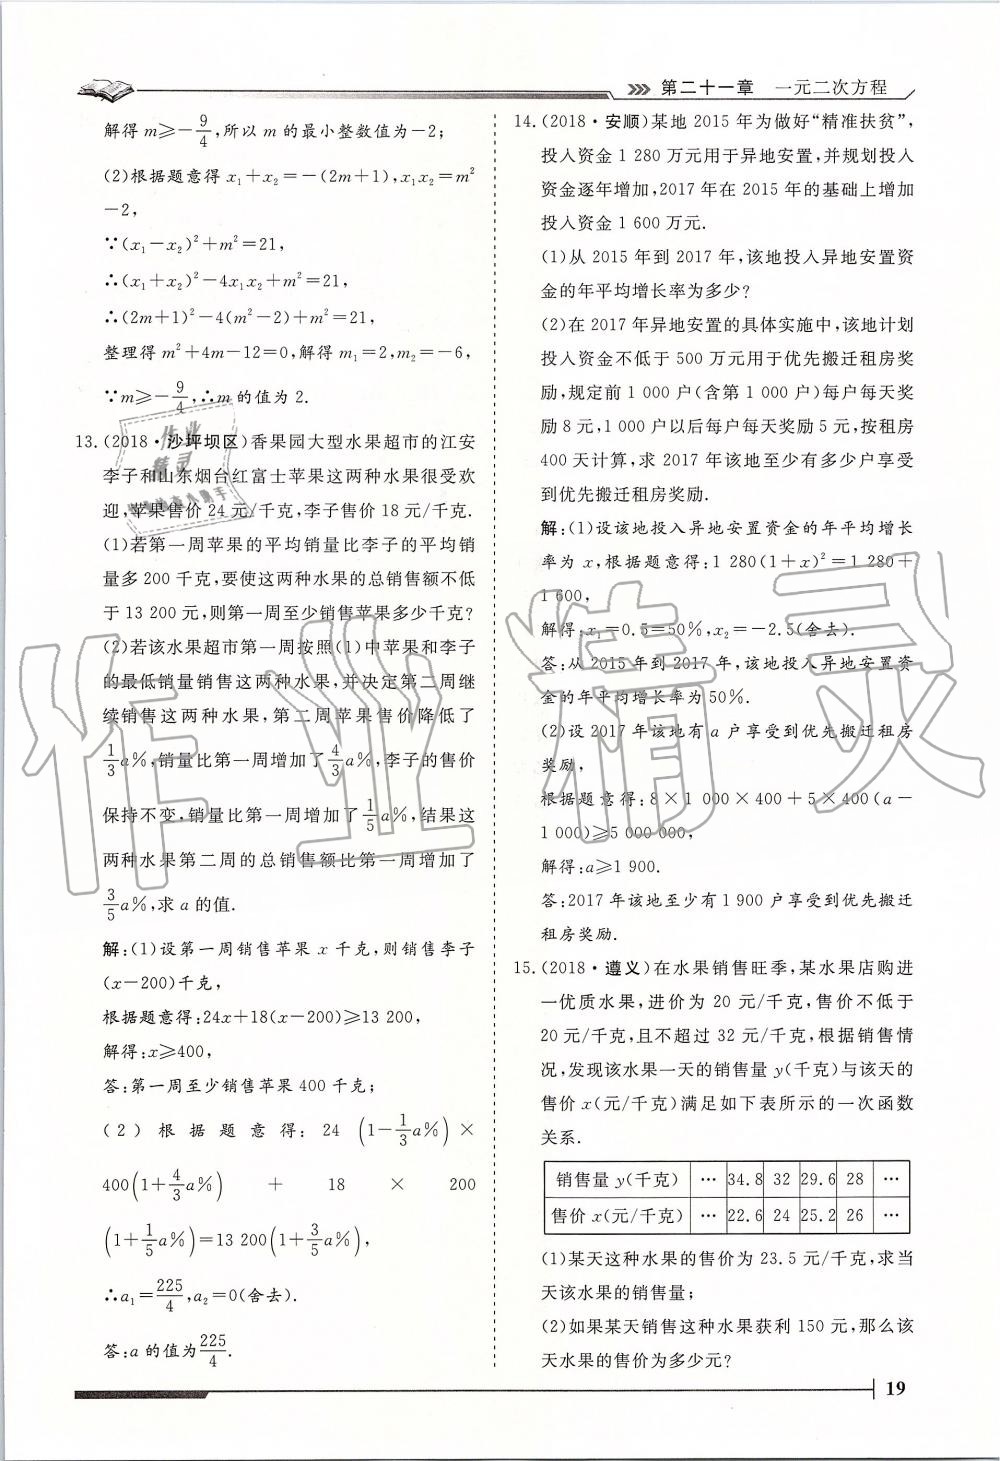 第二十一章 一元二次方程
解得 m≥-9/4,所以 m 的最小整数值为-2;
(2)根据题意得 x₁+x₂=-(2m+1),x₁x₂=m²
-2,
∵(x₁-x₂)²+m²=21,
∴(x₁+x₂)²-4x₁x₂+m²=21,
∴(2m+1)²-4(m²-2)+m²=21,
整理得 m²+4m-12=0,解得 m₁=2,m₂=-6,
∵m≥-9/4,∴m 的值为 2.
13.(2018·沙坪坝区)香果园大型水果超市的江安
李子和山东烟台红富士苹果这两种水果很受欢
迎,苹果售价 24 元/千克,李子售价 18 元/千克.
(1)若第一周苹果的平均销量比李子的平均销
量多 200 千克,要使这两种水果的总销售额不低
于 13 200 元,则第一周至少销售苹果多少千克?
(2)若该水果超市第一周按照(1)中苹果和李子
的最低销量销售这两种水果,并决定第二周继
续销售这两种水果,第二周苹果售价降低了
1/3a%,销量比第一周增加了4/3a%,李子的售价
保持不变,销量比第一周增加了1/5a%,结果这
两种水果第二周的总销售额比第一周增加了
3/5a%,求 a 的值.
解:(1)设第一周销售苹果 x 千克,则销售李子
(x-200)千克,
根据题意得:24x+18(x-200)≥13 200,
解得:x≥400,
答:第一周至少销售苹果 400 千克;
(2)根据题意得:24(1-1/3a%)×
400(1+4/3a%) + 18 × 200
(1+1/5a%)=13 200(1+3/5a%),
∴a₁=225/4,a₂=0(舍去).
答:a 的值为225/4.
14.(2018·安顺)某地 2015 年为做好“精准扶贫”,
投入资金 1 280 万元用于异地安置,并规划投入
资金逐年增加,2017 年在 2015 年的基础上增加
投入资金 1 600 万元.
(1)从 2015 年到 2017 年,该地投入异地安置资
金的年平均增长率为多少?
(2)在 2017 年异地安置的具体实施中,该地计划
投入资金不低于 500 万元用于优先搬迁租房奖
励,规定前 1 000 户(含第 1 000 户)每户每天奖
励 8 元,1 000 户以后每户每天奖励 5 元,按租房
400 天计算,求 2017 年该地至少有多少户享受
到优先搬迁租房奖励.
解:(1)设该地投入异地安置资金的年平均增长
率为 x,根据题意得:1 280(1+x)²=1 280+
1 600,
解得:x₁=0.5=50%,x₂=-2.5(舍去).
答:从 2015 年到 2017 年,该地投入异地安置资
金的年平均增长率为 50%.
(2)设 2017 年该地有 a 户享受到优先搬迁租房
奖励,
根据题意得:8×1 000×400+5×400(a-
1 000)≥5 000 000,
解得:a≥1 900.
答:2017 年该地至少有 1 900 户享受到优先搬迁
租房奖励.
15.(2018·遵义)在水果销售旺季,某水果店购进
一优质水果,进价为 20 元/千克,售价不低于
20 元/千克,且不超过 32 元/千克,根据销售情
况,发现该水果一天的销售量 y(千克)与该天的
售价 x(元/千克)满足如下表所示的一次函数
关系.
销售量 y(千克) … 34.8 32 29.6 28 …
售价 x(元/千克) … 22.6 24 25.2 26 …
(1)某天这种水果的售价为 23.5 元/千克,求当
天该水果的销售量;
(2)如果某天销售这种水果获利 150 元,那么该
天水果的售价为多少元?
19
作业精灵
作业
精灵